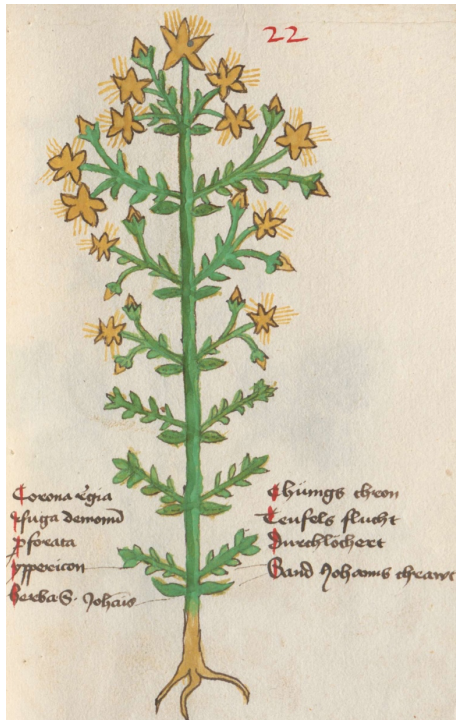 22
Corona regia
ffuga demonũ
pforata
yppericon
herba S. Johãis
Chünigs chron
Teufels flucht
Durchlöchert
Sand Johanns chrawt